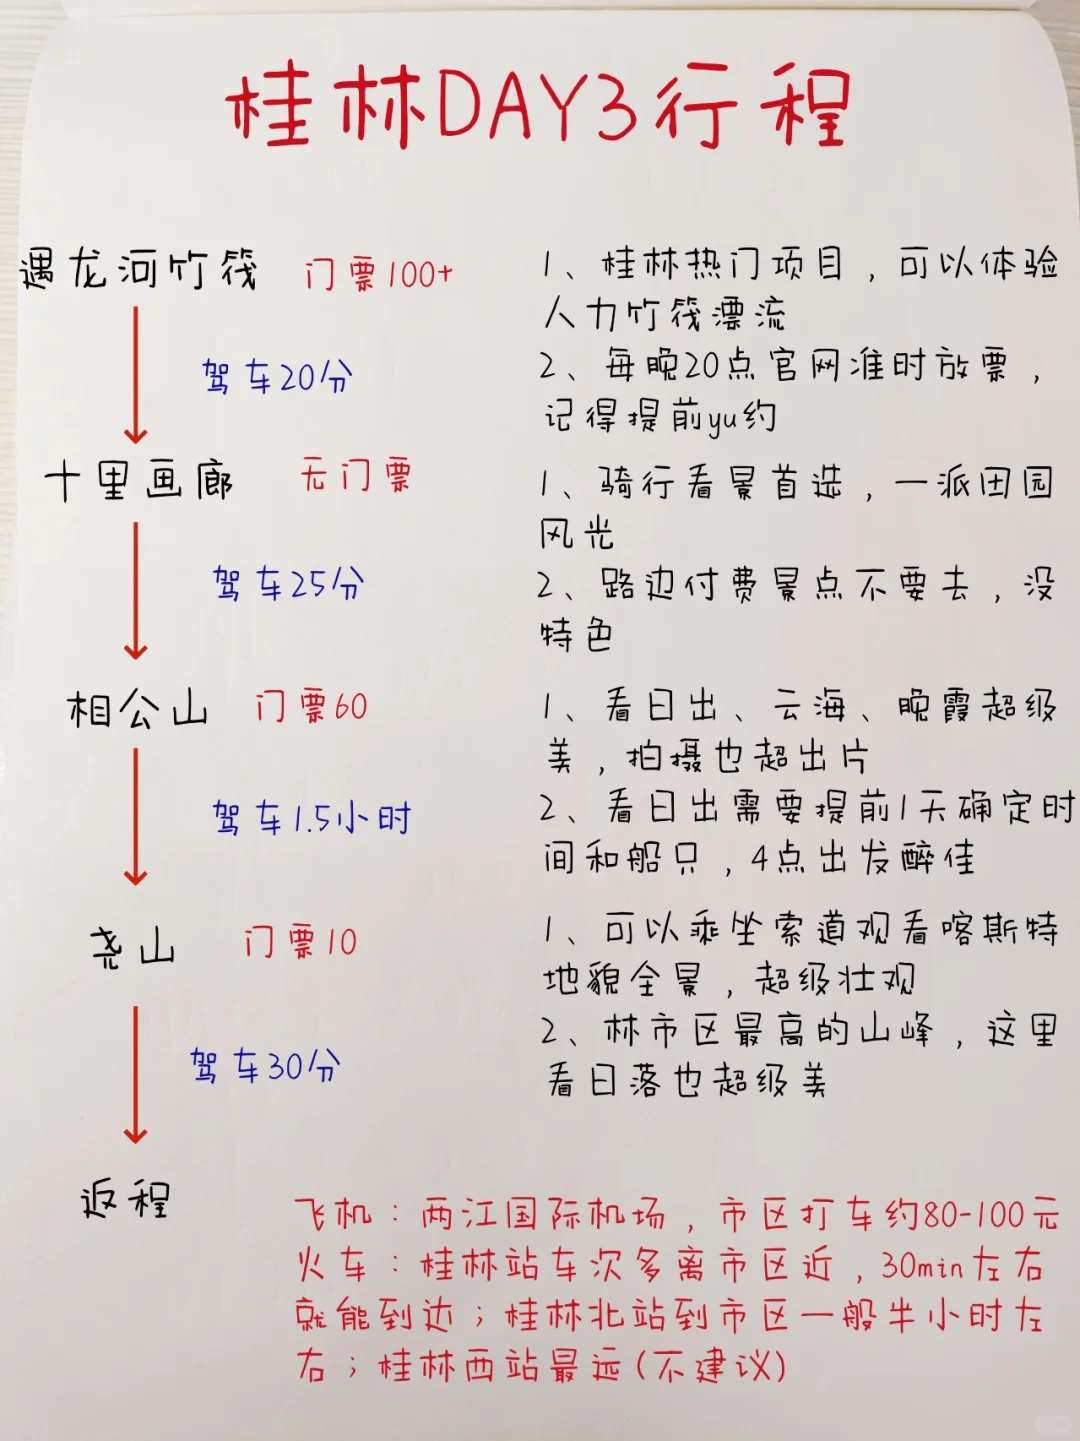 桂林DAY3行程
遇龙河竹筏 门票100+
1、桂林热门项目，可以体验
人力竹筏漂流
驾车20分
2、每晚20点官网准时放票，
记得提前yu约
十里画廊 无门票
1、骑行看景首选，一派田园
风光
驾车25分
2、路边付费景点不要去，没
特色
相公山 门票60
1、看日出、云海、晚霞超级
美，拍摄也超出片
驾车1.5小时
2、看日出需要提前1天确定时
间和船只，4点出发醉佳
尧山 门票10
1、可以乘坐索道观看喀斯特
地貌全景，超级壮观
2、林市区最高的山峰，这里
看日落也超级美
驾车30分
返程
飞机：两江国际机场，市区打车约80-100元
火车：桂林站车次多离市区近，30min左右
就能到达；桂林北站到市区一般半小时左
右；桂林西站最远(不建议)